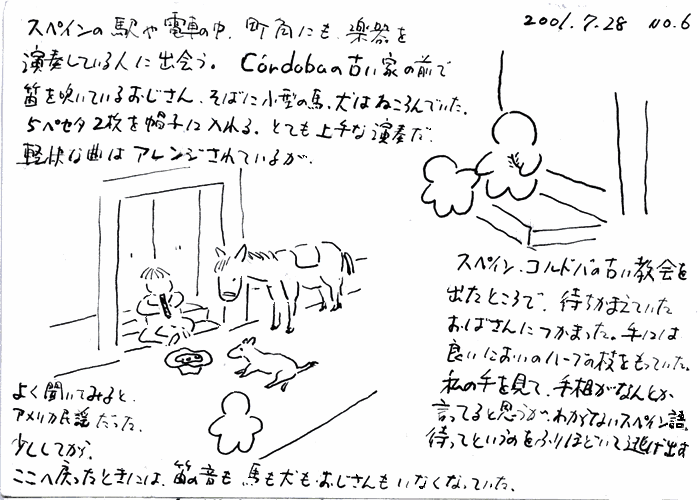 2001.7.28 NO.6
スペインの駅や電車の中、町角にも、楽器を
演奏している人に出会う。 Córdobaの古い家の前で
笛を吹いているおじさん、そばに小型の馬、犬はねころんでいた。
5ペセタ2枚を帽子に入れる。とても上手な演奏だ。
軽快な曲はアレンジされているが、
よく聞いてみると、
アメリカ民謡だった。
少ししてから、
ここへ戻ったときには、笛の音も馬も犬もおじさんもいなくなっていた。
スペイン、コルドバの古い教会を
出たところで、待ちかまえていた
おばさんにつかまった。手には
良いにおいのハーブの枝をもっていた。
私の手を見て、手相がなんとか
言ってると思うが、わからないスペイン語。
待ってというのをふりほどいて逃げ出す